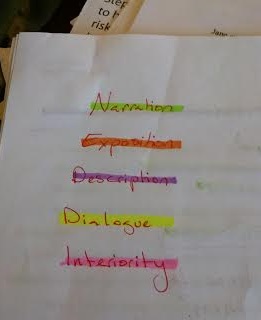 to h
risk
Narration
Exposition
Description
Dialogue
Interiority